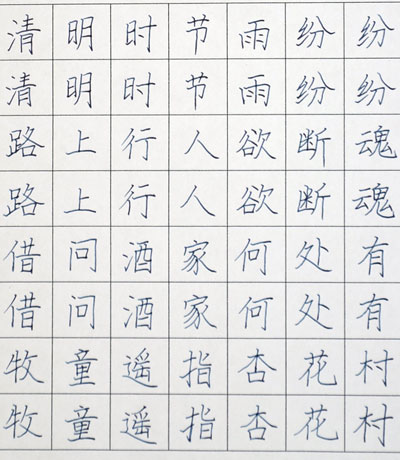 清明时节雨纷纷
清明时节雨纷纷
路上行人欲断魂
路上行人欲断魂
借问酒家何处有
借问酒家何处有
牧童遥指杏花村
牧童遥指杏花村